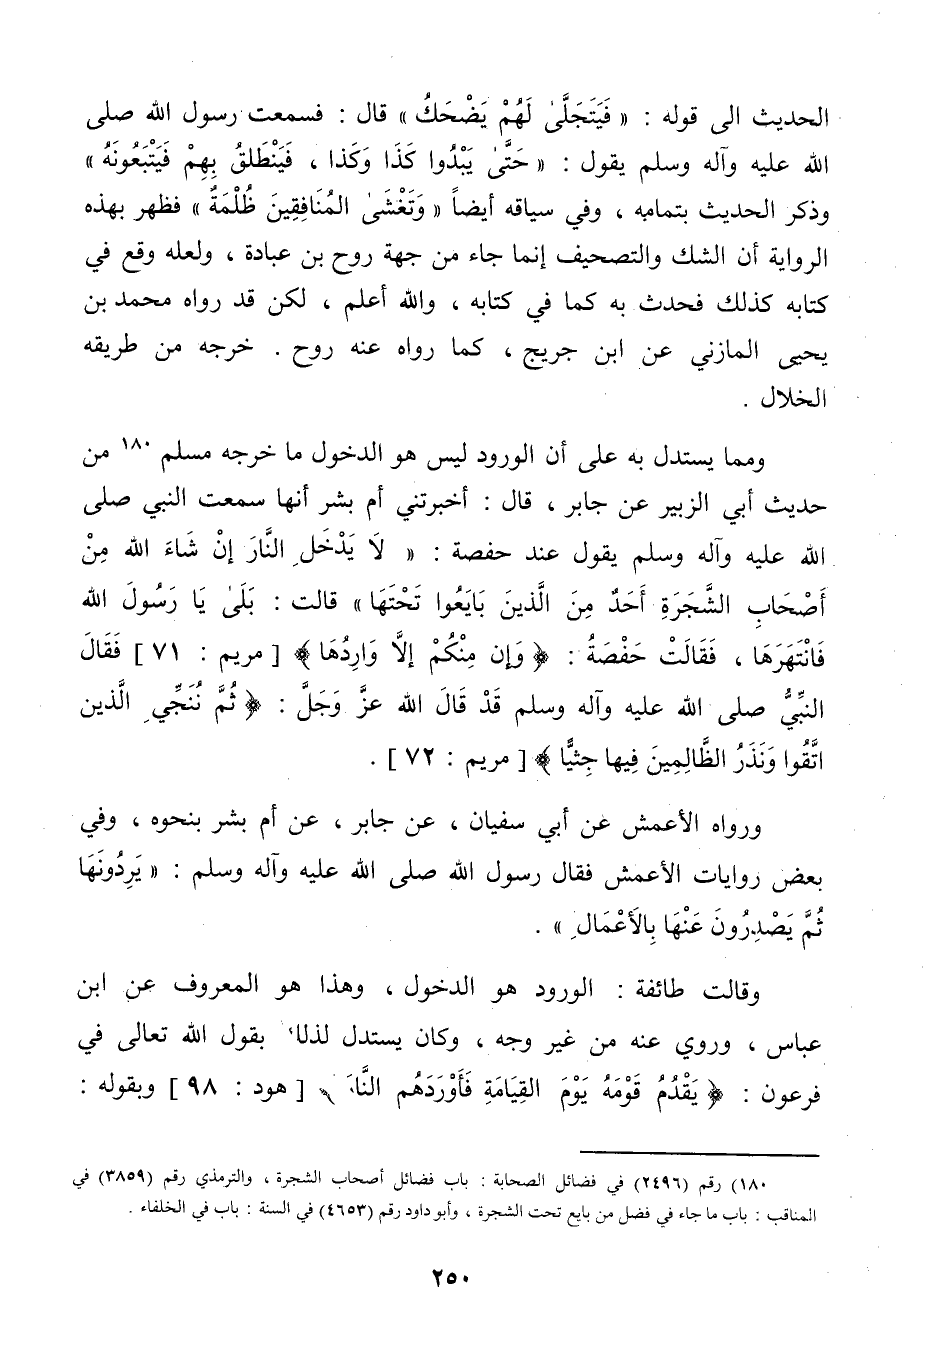 الحديث الى قوله : « فَيَتَجَلَّىٰ لَهُمْ يَضْحَكُ » قال : فسمعت رسول الله صلى
الله عليه وآله وسلم يقول : « حَتَّىٰ يَبْدُوا كَذَا وَكَذا ، فَيَنْطَلِقُ بِهِمْ فَيَتْبَعُونَهُ »
وذكر الحديث بتمامه ، وفي سياقه أيضاً « وَتَغْشَىٰ المُنَافِقِينَ ظُلْمَةٌ » فظهر بهذه
الرواية أن الشك والتصحيف إنما جاء من جهة روح بن عبادة ، ولعله وقع في
كتابه كذلك فحدث به كما في كتابه ، والله أعلم ، لكن قد رواه محمد بن
يحيى المازني عن ابن جريج ، كما رواه عنه روح . خرجه من طريقه
الخلال .
ومما يستدل به على أن الورود ليس هو الدخول ما خرجه مسلم ١٨٠ من
حديث أبي الزبير عن جابر ، قال : أخبرتني أم بشر أنها سمعت النبي صلى
الله عليه وآله وسلم يقول عند حفصة : « لَا يَدْخَلِ النَّارَ إِنْ شَاءَ الله مِنْ
أَصْحَابِ الشَّجَرَةِ أَحَدٌ مِنَ الَّذينَ بَايَعُوا تَحْتَهَا » قالت : بَلَىٰ يَا رَسُولَ الله
فَانْتَهَرَهَا ، فَقَالَتْ حَفْصَةُ : ﴿ وَإِن مِنْكُمْ إلَّا وَارِدُهَا ﴾ [ مريم : ٧١ ] فَقَالَ
النبِّيُّ صلى الله عليه وآله وسلم قَدْ قَالَ الله عزَّ وَجَلَّ : ﴿ ثُمَّ نُنَجِّي الَّذين
اتَّقُوا وَنَذَرُ الظَّالِمِينَ فِيها جِثيًّا ﴾ [ مريم : ٧٢ ] .
ورواه الأعمش عن أبي سفيان ، عن جابر ، عن أم بشر بنحوه ، وفي
بعض روايات الأعمش فقال رسول الله صلى الله عليه وآله وسلم : « يَرِدُونَهَا
ثُمَّ يَصْدِرُونَ عَنْهَا بِالأَعْمَالِ » .
وقالت طائفة : الورود هو الدخول ، وهذا هو المعروف عن ابن
عباس ، وروي عنه من غير وجه ، وكان يستدل لذلك بقول الله تعالى في
فرعون : ﴿ يَقْدُمُ قَوْمَهُ يَوْمَ القِيَامَةِ فَأَوْرَدَهُم النَّارَ ﴾ [ هود : ٩٨ ] وبقوله :
١٨٠) رقم (٢٤٩٦) في فضائل الصحابة : باب فضائل أصحاب الشجرة ، والترمذي رقم (٣٨٥٩) في
المناقب : باب ما جاء في فضل من بايع تحت الشجرة ، وأبو داود رقم (٤٦٥٣) في السنة : باب في الخلفاء .
٢٥٠